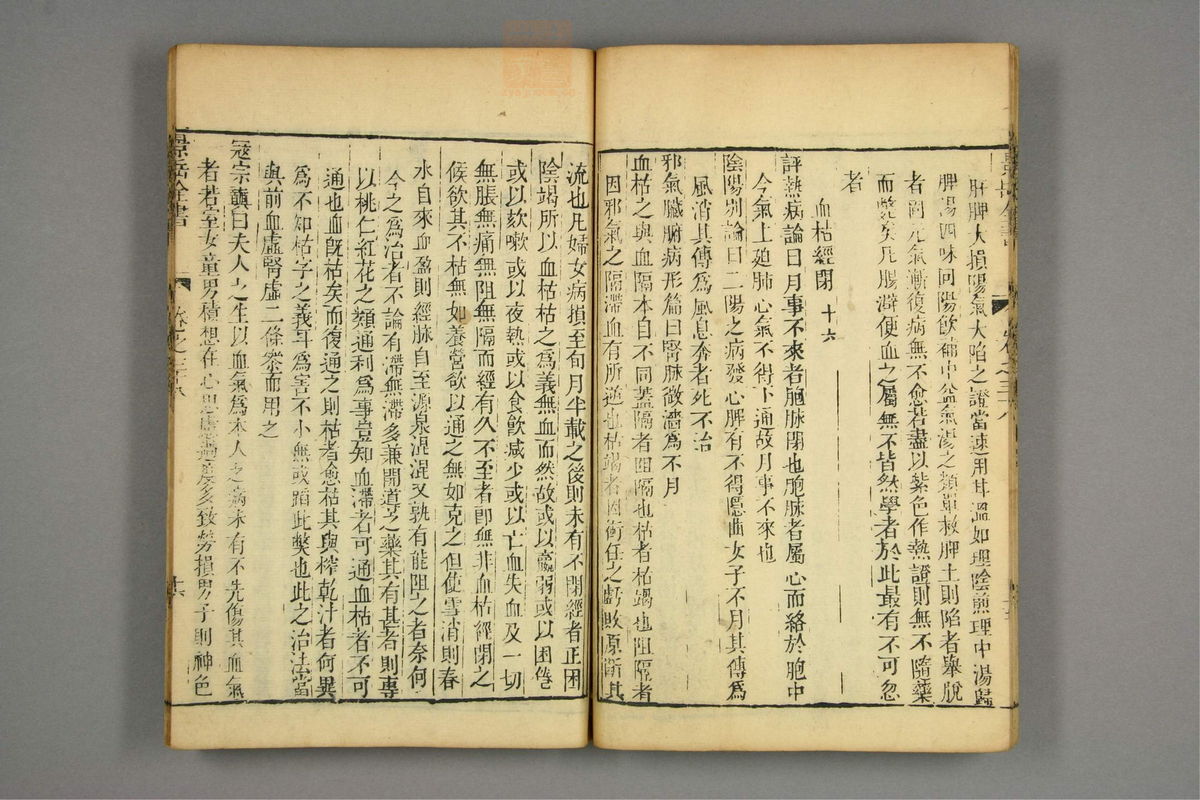 肝脾大損陽氣大陷之證當速用甘溫如理陰煎理中湯歸
脾湯四味回陽飲補中益氣湯之類單救脾土則陷者舉脫
者固元氣漸復病無不愈若盡以紫色作熱證則無不隨藥
而斃矣凡腸澼便血之屬無不皆然學者於此最有不可忽
者
血枯經閉 十六
評熱病論曰月事不來者胞脉閉也胞脉者屬心而絡於胞中
今氣上廹肺心氣不得下通故月事不來也
陰陽别論曰二陽之病發心脾有不得隱曲女子不月其傳爲
風消其傳爲風息奔者死不治
邪氣臟腑病形篇曰腎脉微濇爲不月
血枯之與血隔本自不同葢隔者阻隔也枯者枯竭也阻隔者
因邪氣之隔滯血有所逆也枯竭者因衝任之虧敗原斷其
流也凡婦女病損至旬月半載之後則未有不閉經者正因
陰竭所以血枯枯之爲義無血而然故或以羸弱或以困倦
或以欬嗽或以夜熱或以食飲减少或以亡血失血及一切
無脹無痛無阻無隔而經有久不至者即無非血枯經閉之
候欲其不枯無如養營欲以通之無如充之但使雪消則春
水自來血盈則經脉自至源泉混混又孰有能阻之者奈何
今之爲治者不論有滯無滯多兼開導之藥其有甚者則專
以桃仁紅花之類通利爲事豈知血滯者可通血枯者不可
通也血既枯矣而復通之則枯者愈枯其與榨乾汁者何異
爲不知枯字之義耳爲害不小無或蹈此弊也此之治法當
與前血虛腎虛二條叅而用之
寇宗奭曰夫人之生以血氣爲本人之病未有不先傷其血氣
者若室女童男積想在心思慮過度多致勞損男子則神色
景岳全書
卷之三十八